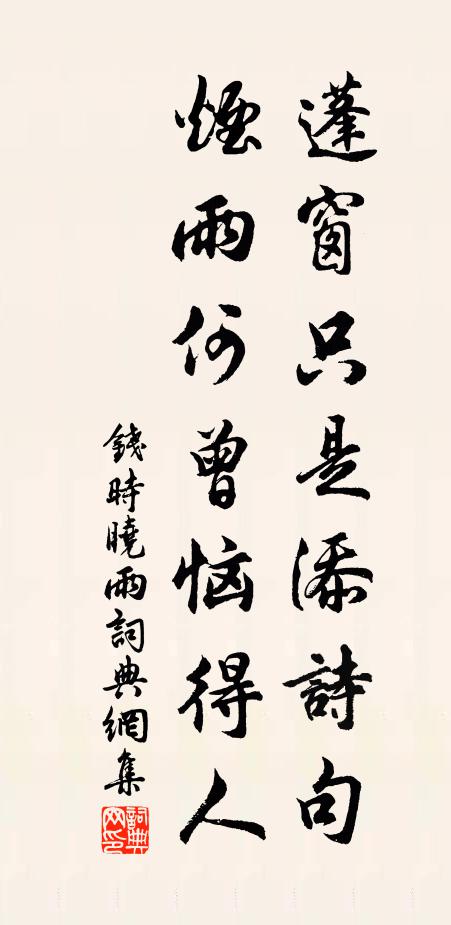 蓬窗只是添詩句
煙雨何曾惱得人
錢時曉雨詞典網集
詞典
网印